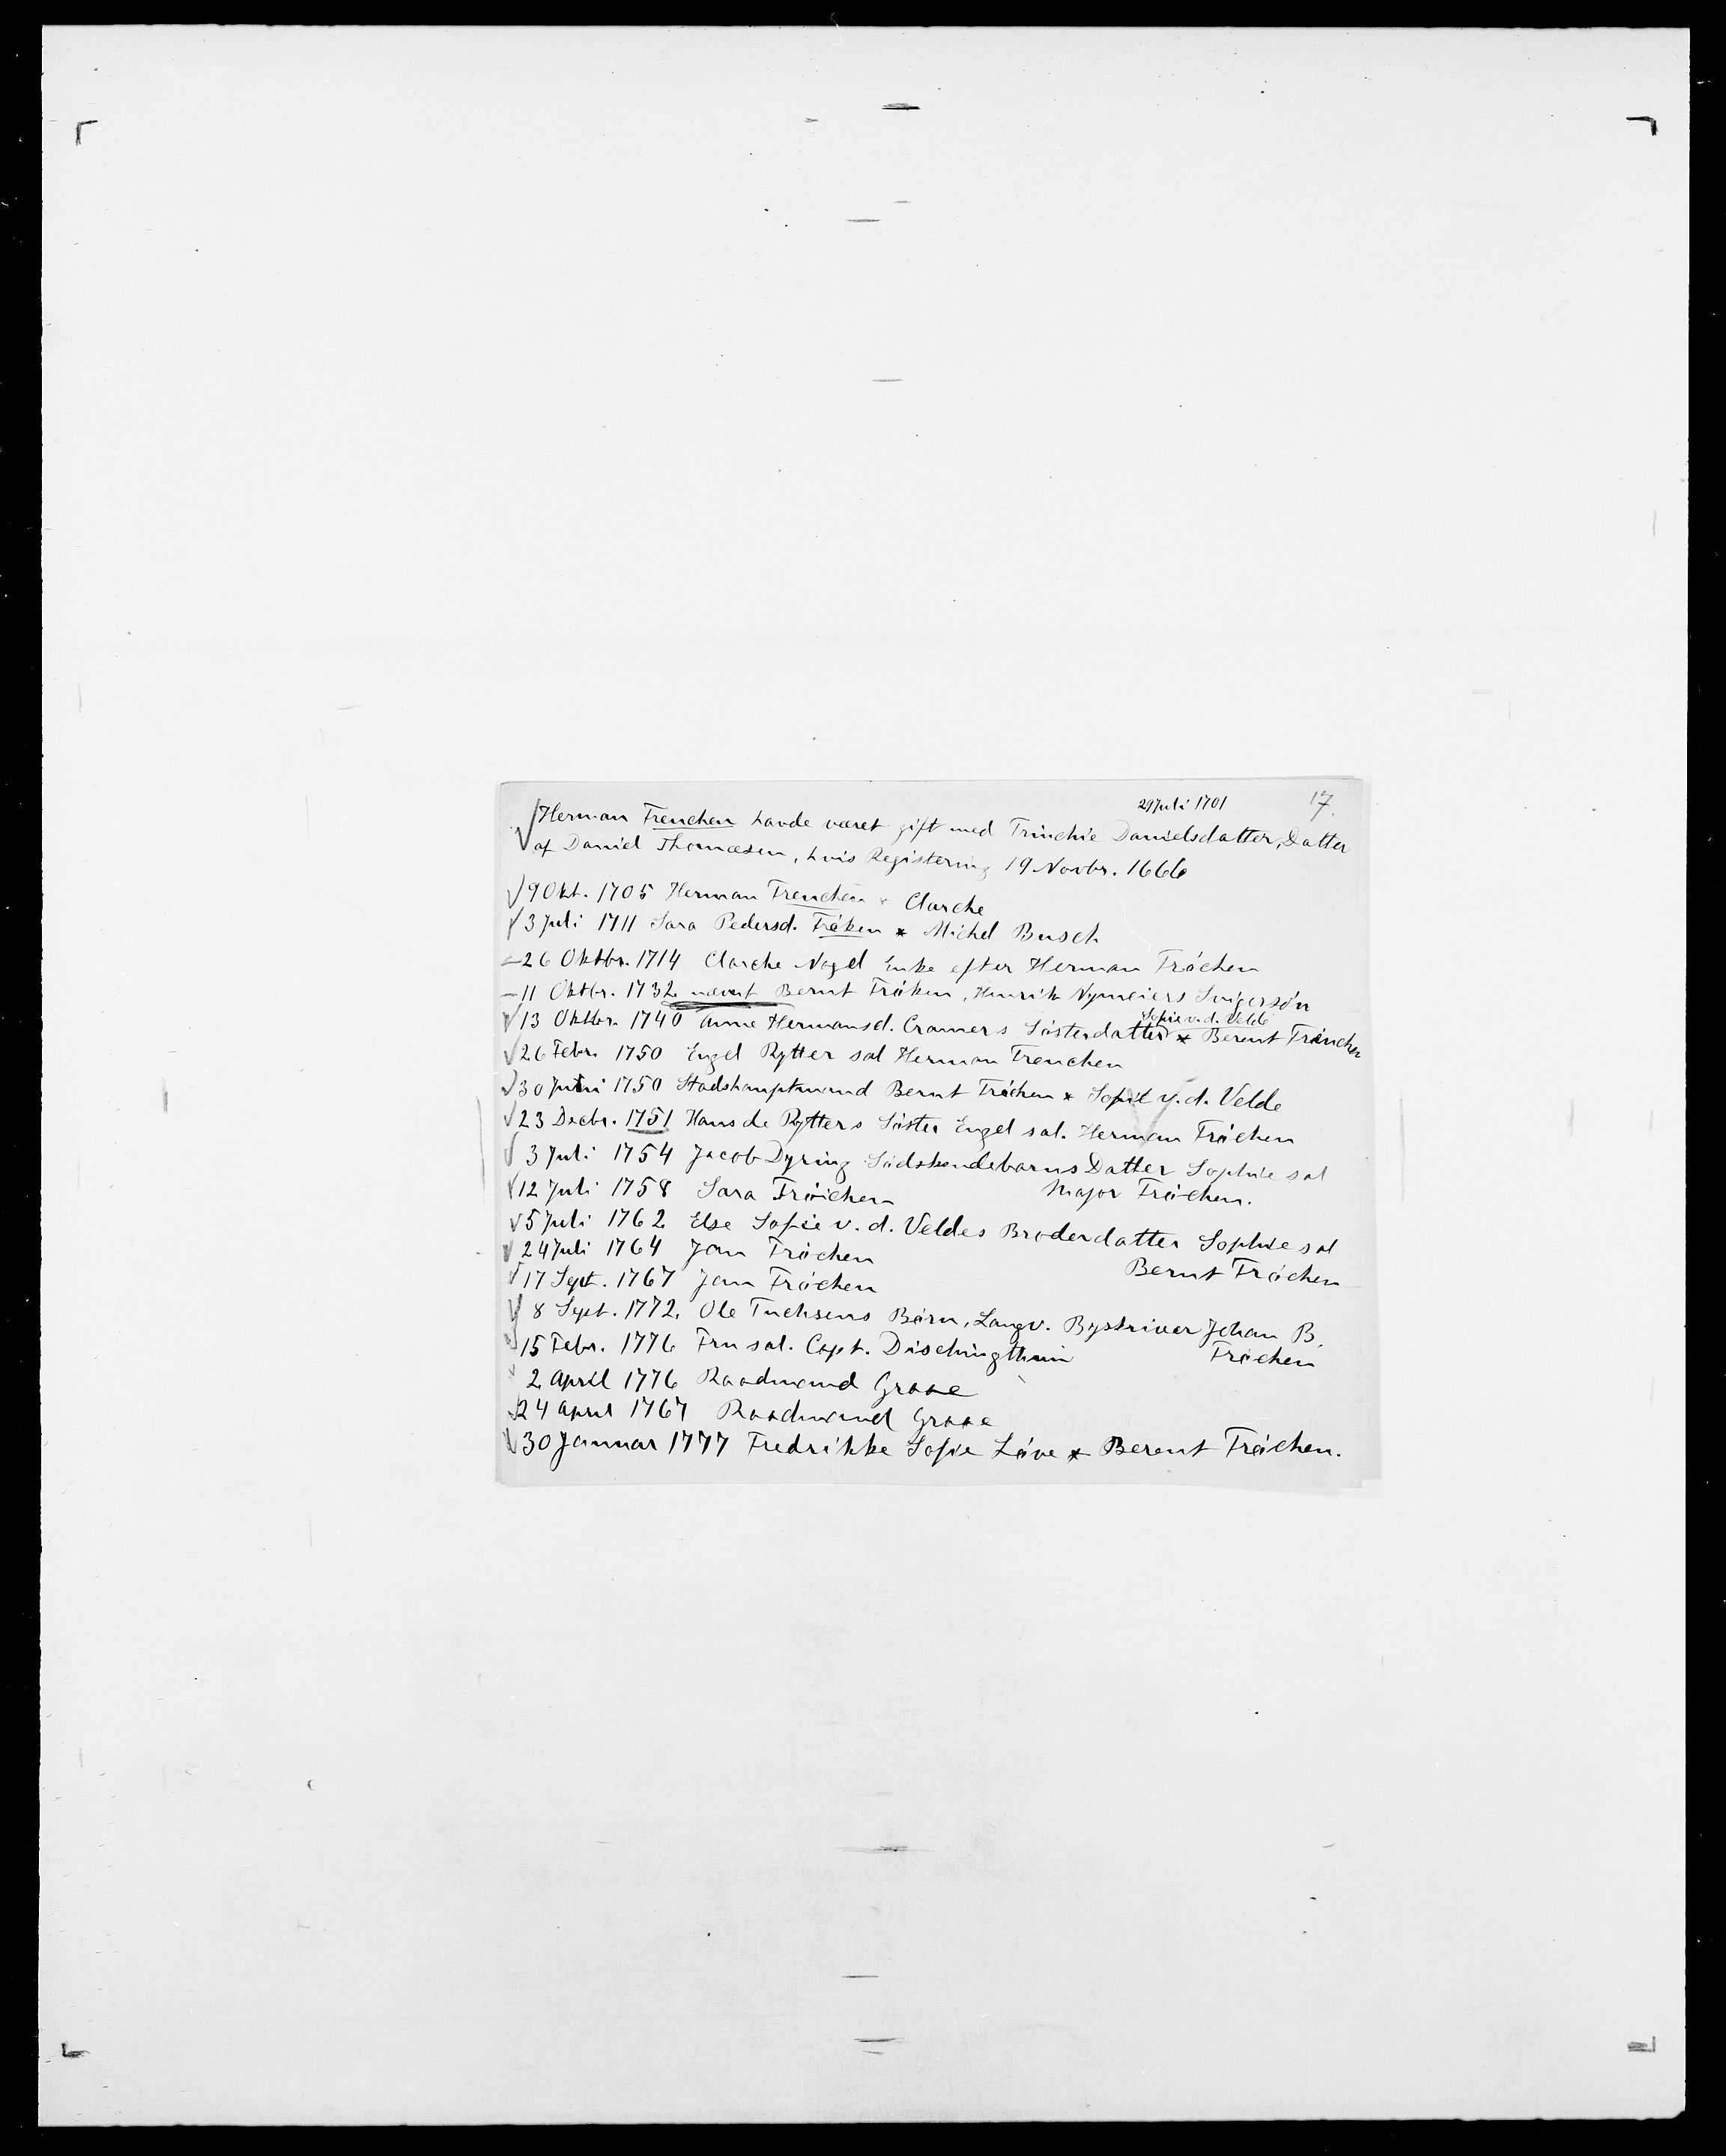 29 Juli 1701 17.
Herman Trenchen havde været gift med Trinchie Danielsdatter, Datter
af Daniel Thomæsen, hvis Registering 19 Novbr. 1666
9 Okt. 1705 Herman Trenchen * Clarche
3 Juli 1711 Sara Pedersd. Tröken * Michel Busch
- 26 Oktbr. 1714 Clarche Nagel Enke efter Herman Tröchen
- 11 Oktbr. 1732 nævnt Bernt Tröken, Henrik Nymeiers Svigersön
Sofie v. d. Velde
13 Oktbr. 1740 Anne Hermansd. Cramers Sösterdatter * Berent Trönchen
26 Febr. 1750 Engel Rytter sal Herman Trenchen
30 Juni 1750 Stadshauptmand Bernt Tröchen * Sofie v. d. Velde
23 Decbr. 1751 Hans de Rytters Söster Engel sal. Herman Tröchen
3 Juli 1754 Jacob Dyring Södskendebarns Datter Sophie sal
Major Tröchen.
12 Juli 1758 Sara Tröichen
5 Juli 1762 Else Sofie v. d. Veldes Broderdatter Sophie sal
Bernt Tröchen
24 Juli 1764 Jan Tröchen
17 Sept. 1767 Jan Tröchen
8 Sept. 1772. Ole Tuchsens Börn, Laugv. Byskriver Johan B.
Tröchen
15 Febr. 1776 Fru sal. Capt. Dischingthun
2 April 1776 Raadmand Graae
24 April 1767 Raadmand Graae
30 Januar 1777 Fredrikke Sofie Löve * Berent Tröichen.